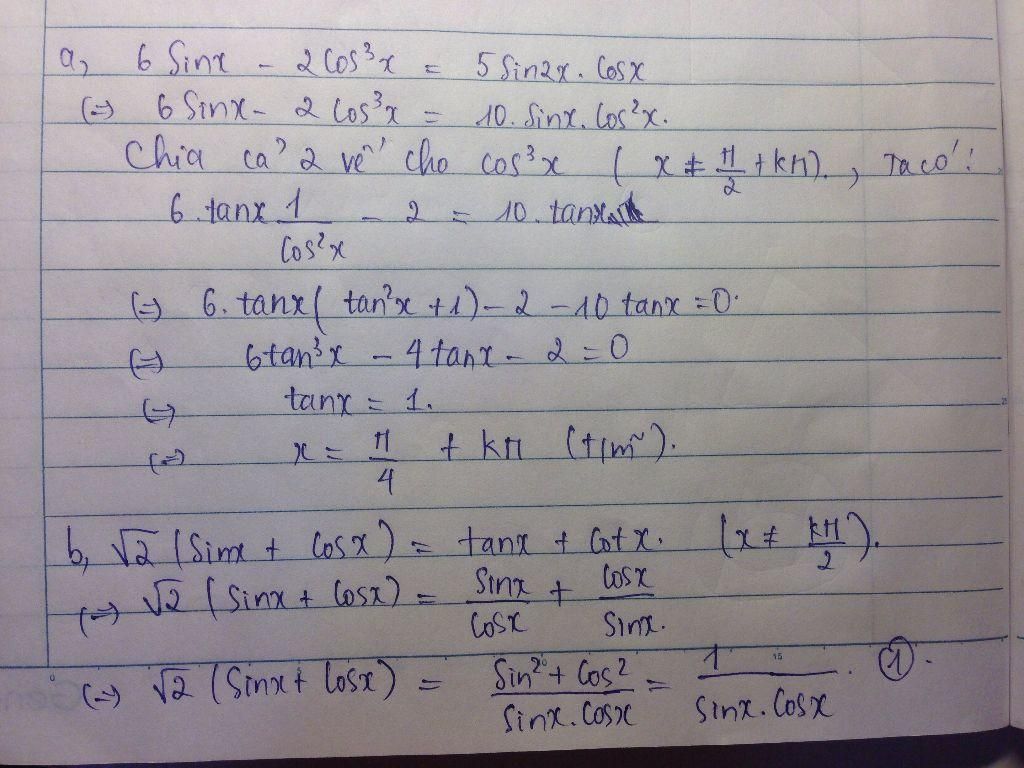 a, 6 Sinx - 2 Cos³x = 5 Sin2x. Cosx
(=) 6 Sinx - 2 Cos³x = 10. Sinx. Cos²x.
Chia cả 2 vế cho cos³x ( x ≠ π/2 + kπ)., Ta có:
6. tanx 1/Cos²x - 2 = 10. tanx
(=) 6. tanx ( tan²x + 1) - 2 - 10 tanx = 0.
(=) 6tan³x - 4 tanx - 2 = 0
(=) tanx = 1.
(=) x = π/4 + kπ (t/m).
b, √2 (Sinx + Cosx) = tanx + Cotx. (x ≠ kπ/2).
(=) √2 (Sinx + Cosx) = Sinx/Cosx + Cosx/Sinx.
(=) √2 (Sinx + Cosx) = Sin² + Cos²/Sinx. Cosx = 1/Sinx. Cosx . ①.